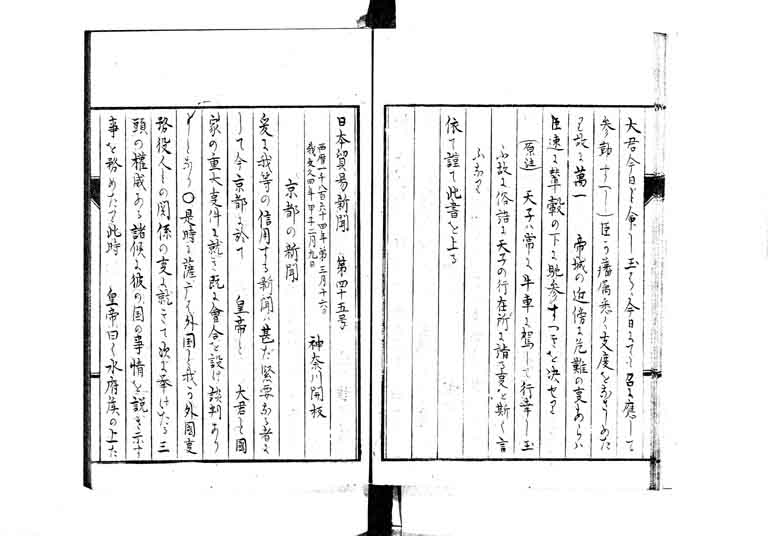 大君今日ニ命し玉らハ今日にても召ニ應して
参勤すへし臣う藩属悉く支度をなしめた
れ故ニ萬一　帝城の近傍ニ危難の変あらハ
臣速ニ輦轂の下ニ馳参すへきを决せり
（原注）　天子ハ常ニ牛車ニ駕して行幸し玉
ふ故ニ俗語ニ天子の行在所ニ詣る変を斯く言
ふなり
依て謹て此書を上る
日本貿易新聞　第四十五号
西暦千八百六十四年第三月十六日
我文久四年甲子二月九日
神奈川開板
京都の新聞
爰ニ我等の信用する新聞ハ甚た緊要なる者ニ
して今京都ニ於て　皇帝と　大君と国
家の重大事件ニ就き既ニ會合を設け談判あり
としなり〇是時ニ薩广も外国と我う外国事
務役人との関係の変ニ就きて次ニ挙けたる三
頭の權威ある諸侯ニ彼の国の事情を説き示す
事を務めたり此時　皇帝曰く水府侯の上た